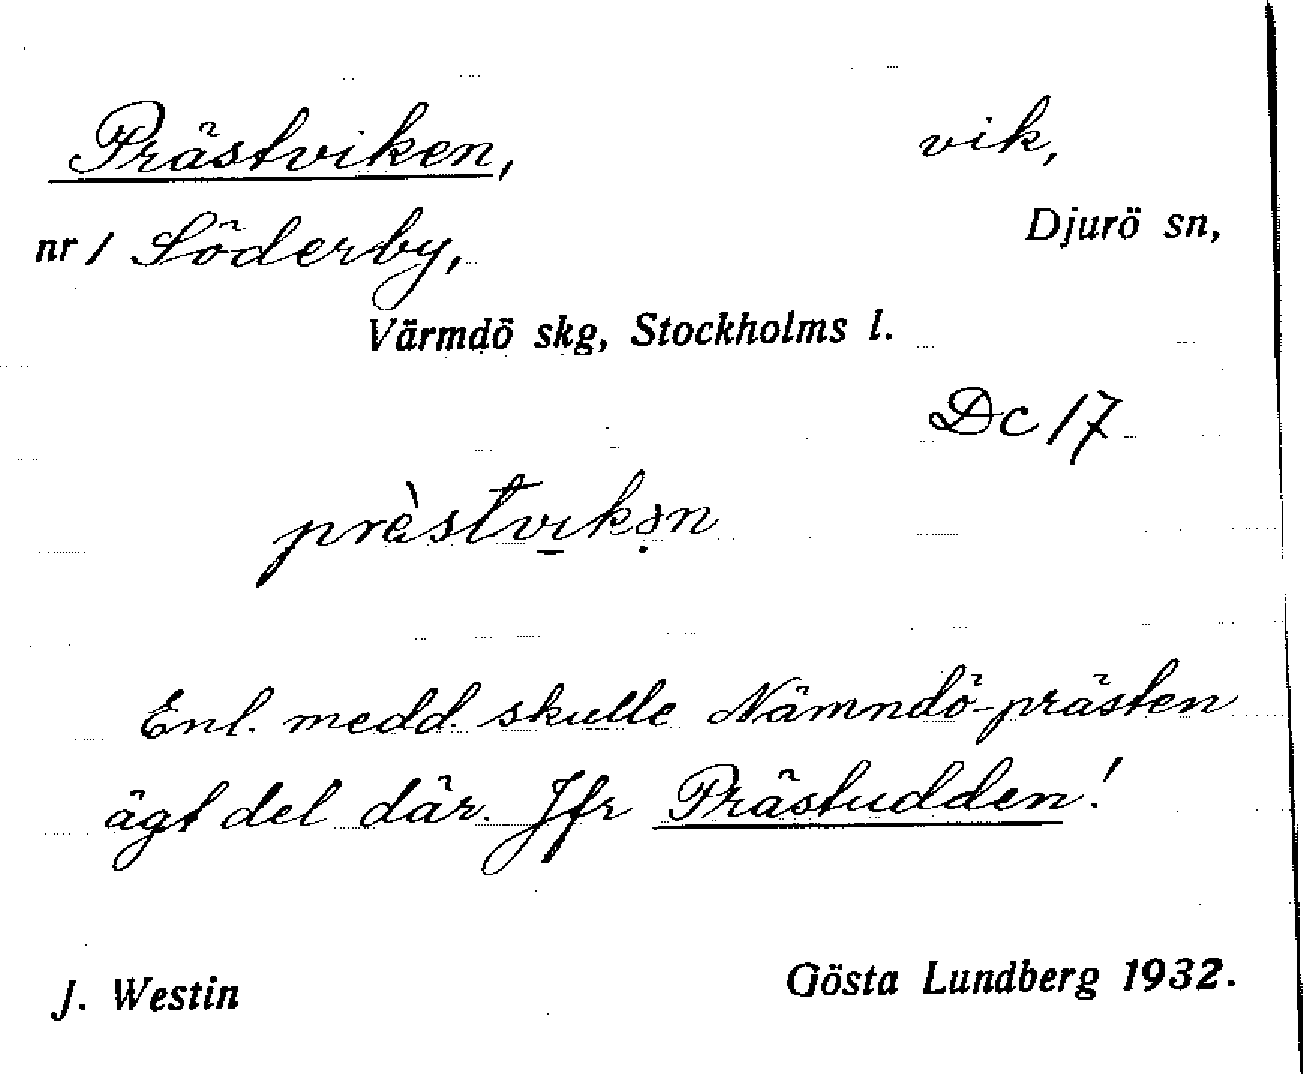 Prästviken, vik,
nr 1 Söderby, Djurö sn,
Värmdö skg, Stockholms l.
Dc 17
prèstvı̠kə̣n
Enl. medd. skulle Nämndö-prästen
ägt del där. Jfr Prästudden!
J. Westin Gösta Lundberg 1932.